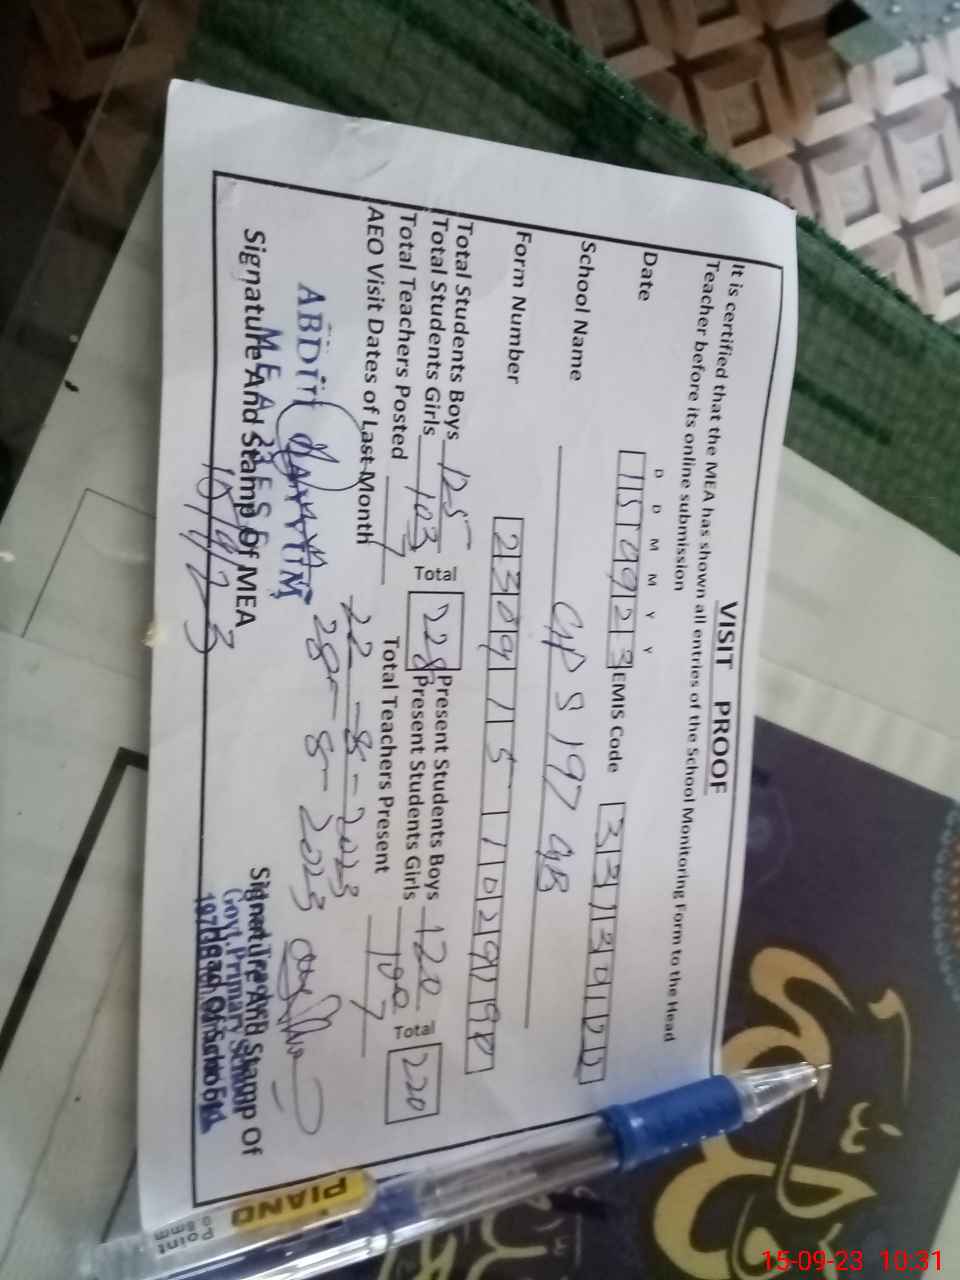 VISIT PROOF
It is certified that the MEA has shown all entries of the School Monitoring Form to the Head
Teacher before its online submission
D D M M Y Y
Date 150923 EMIS Code
School Name GPS 197 GB
Form Number
Total Students Boys 125 Total 228 Present Students Boys 120 Total 220
Total Students Girls 103 Present Students Girls 100
Total Teachers Posted 7 Total Teachers Present 7
AEO Visit Dates of Last Month 22-8-2023
28-8-2023
ABDUL
MEA
15/9/23
Signature And Stamp Of MEA
Signature And Stamp Of
Head Of School
Govt. Primary School
PIANO
Point
0.8mm
15-09-23 10:31